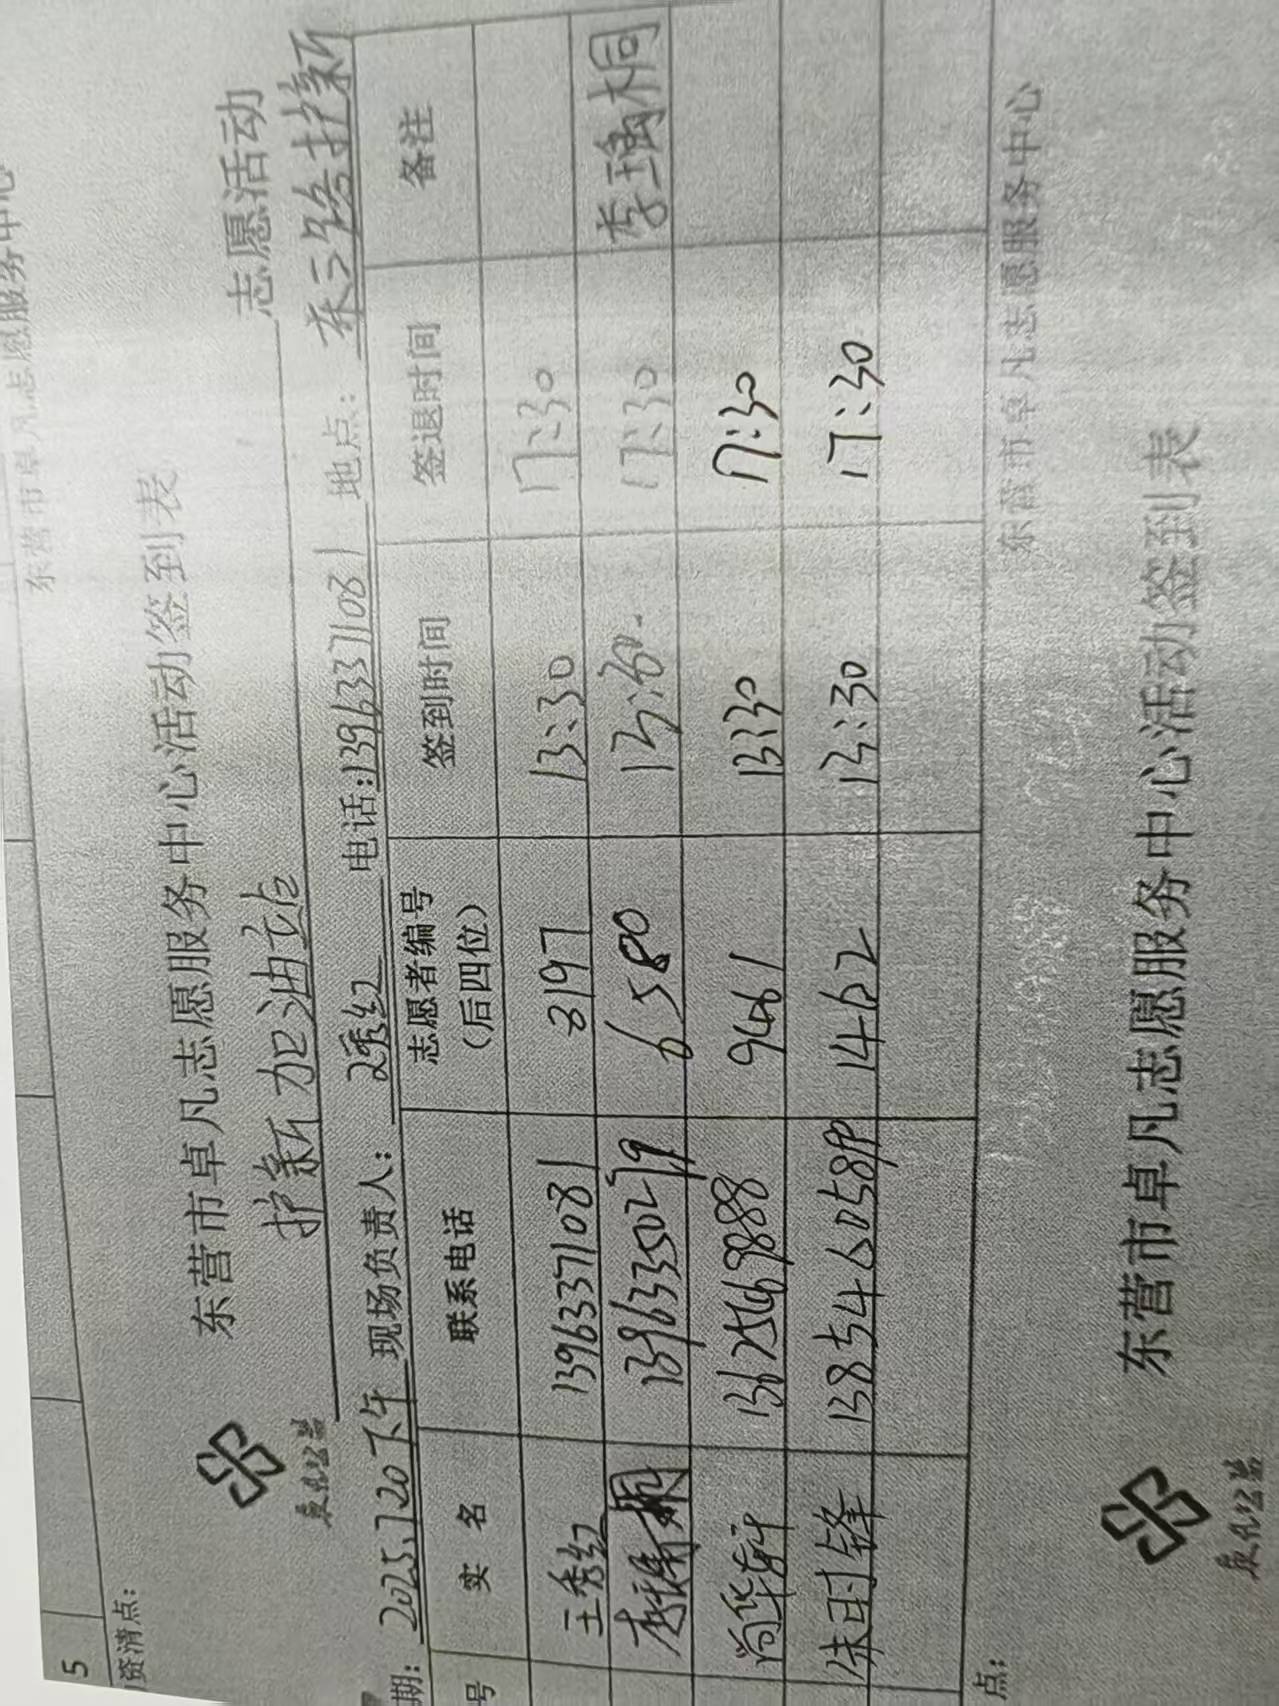 东营市卓凡志愿服务中心
5
资清点:
东营市卓凡志愿服务中心
东营市卓凡志愿服务中心活动签到表
卓凡公益
护新加油站 志愿活动
期: 2025.7.20下午 现场负责人: 王秀红 电话:13963371081 地点: 东三路护新
号 实 名 联系电话 志愿者编号(后四位) 签到时间 签退时间 备注
王秀红 13963371081 8197 13:30 17:30
13963350279 6580 13:30 17:30 李瑀桐
尚华轩 13625469888 9461 13:30 17:30
朱时锋 13854605899 1462 13:30 17:30
点:
东营市卓凡志愿服务中心
东营市卓凡志愿服务中心活动签到表
卓凡公益